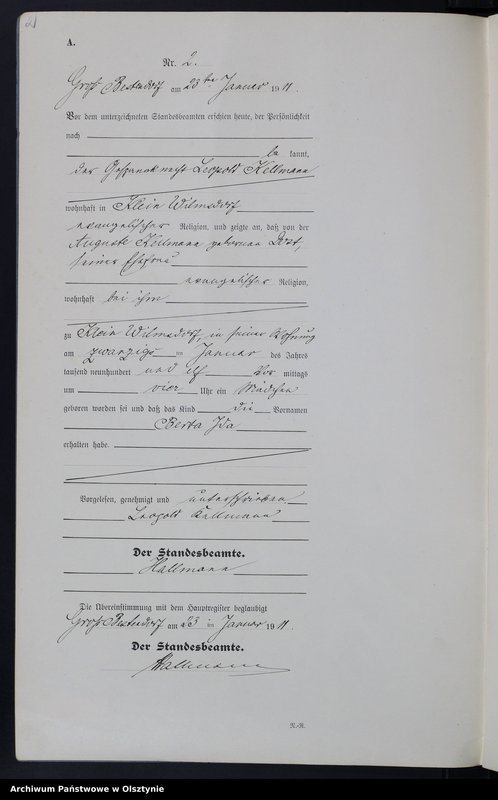 A.
Nr. 2.
Groß Bestendorf am 23ten Januar 1911.
Vor dem unterzeichneten Standesbeamten erschien heute, der Persönlichkeit
nach
be kannt,
der Gespannknecht Leopold Kellmann
wohnhaft in Klein Wilmsdorf
evangelischer Religion, und zeigte an, daß von der
Auguste Kellmann geborenen
seiner Ehefrau
evangelischer Religion,
wohnhaft bei ihm
zu Klein Wilmsdorf, in seiner Wohnung
am zwanzigs ten Januar des Jahres
tausend neunhundert und elf Vor mittags
um vier Uhr ein Mädchen
geboren worden sei und daß das Kind die Vornamen
Berta Ida
erhalten habe.
Vorgelesen, genehmigt und unterschrieben
Leopold Kellmann
Der Standesbeamte.
Hallmann
Die Übereinstimmung mit dem Hauptregister beglaubigt
Groß Bestendorf am 23 ten Januar 1911.
Der Standesbeamte.
Hallmann
N.-R.
Archiwum Państwowe w Olsztynie